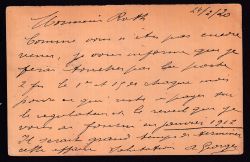 24/2/20
Monsieur Roth
Comme vous n'êtes pas encore
venu, je vous informe que je
ferai toucher par la poste
2 fr. le 1er et 15 chaque mois
pour ce qui reste à payer sur
le régulateur et le réveil que je
vous ai fourni en janvier 1912
Il serait grand temps de terminer
cette affaire Salutations